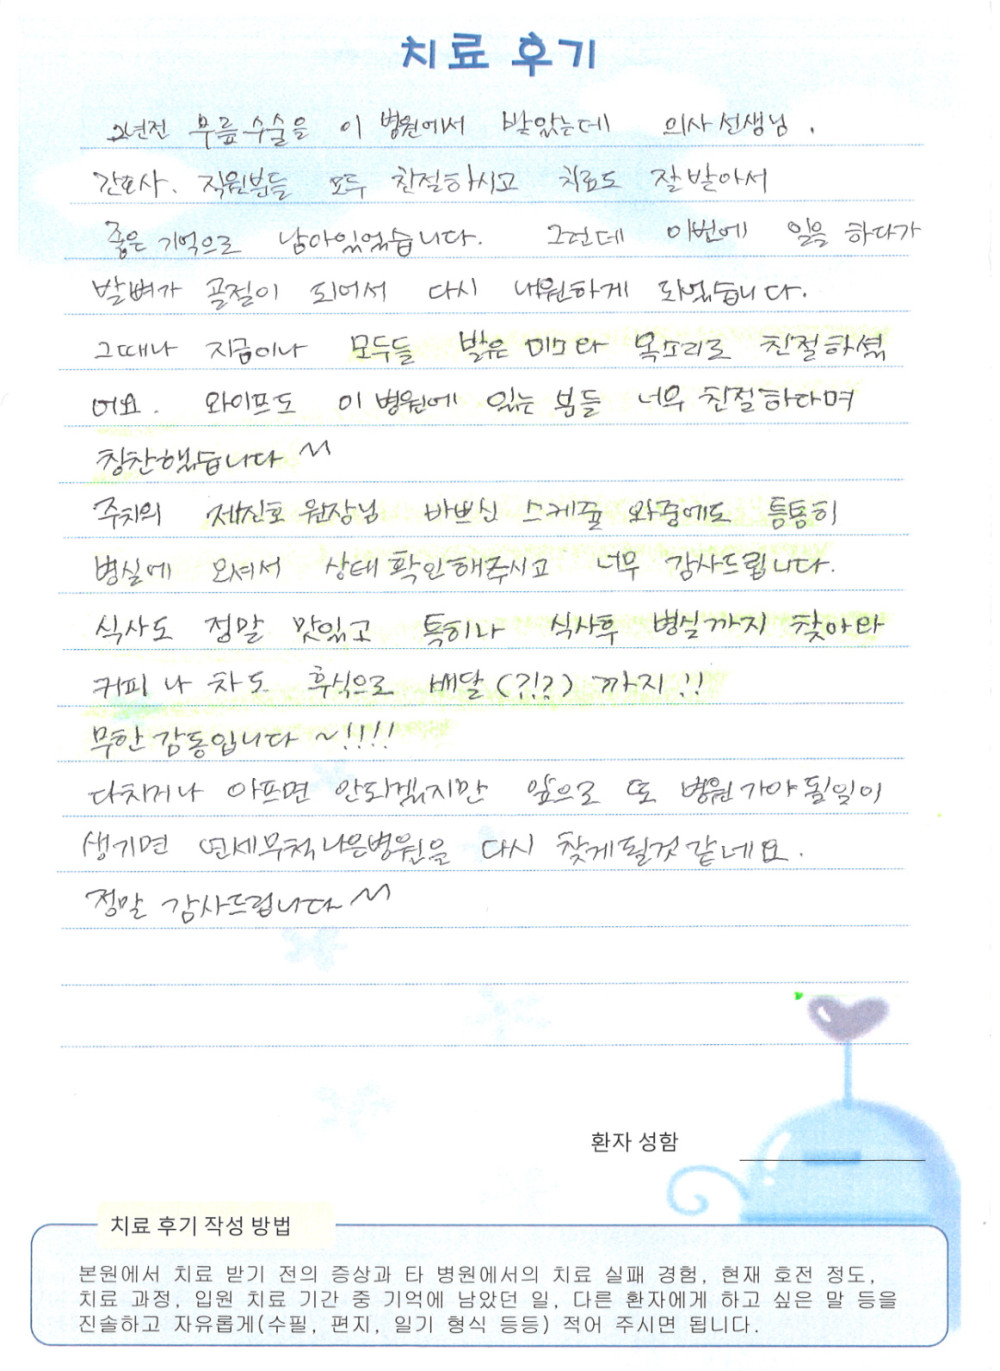 치료 후기
2년전 무릎 수술을 이 병원에서 받았는데 의사선생님,
간호사, 직원분들 모두 친절하시고 치료도 잘받아서
좋은 기억으로 남아있었습니다. 그런데 이번에 일을 하다가
발뼈가 골절이 되어서 다시 내원하게 되었습니다.
그때나 지금이나 모두들 밝은 미소와 목소리로 친절하셨
어요. 와이프도 이 병원에 있는 분들 너무 친절하다며
칭찬했습니다 ^^
주치의 제진호 원장님 바쁘신 스케쥴 와중에도 틈틈히
병실에 오셔서 상태 확인해주시고 너무 감사드립니다.
식사도 정말 맛있고 특히나 식사후 병실까지 찾아와
커피나 차도 후식으로 배달(?!?) 까지!!
무한 감동입니다 ~!!!!
다치거나 아프면 안되겠지만 앞으로 또 병원 가야 될일이
생기면 연세무척나은병원을 다시 찾게될것 같네요.
정말 감사드립니다 ^^
환자 성함
치료 후기 작성 방법
본원에서 치료 받기 전의 증상과 타 병원에서의 치료 실패 경험, 현재 호전 정도,
치료 과정, 입원 치료 기간 중 기억에 남았던 일, 다른 환자에게 하고 싶은 말 등을
진솔하고 자유롭게(수필, 편지, 일기 형식 등등) 적어 주시면 됩니다.